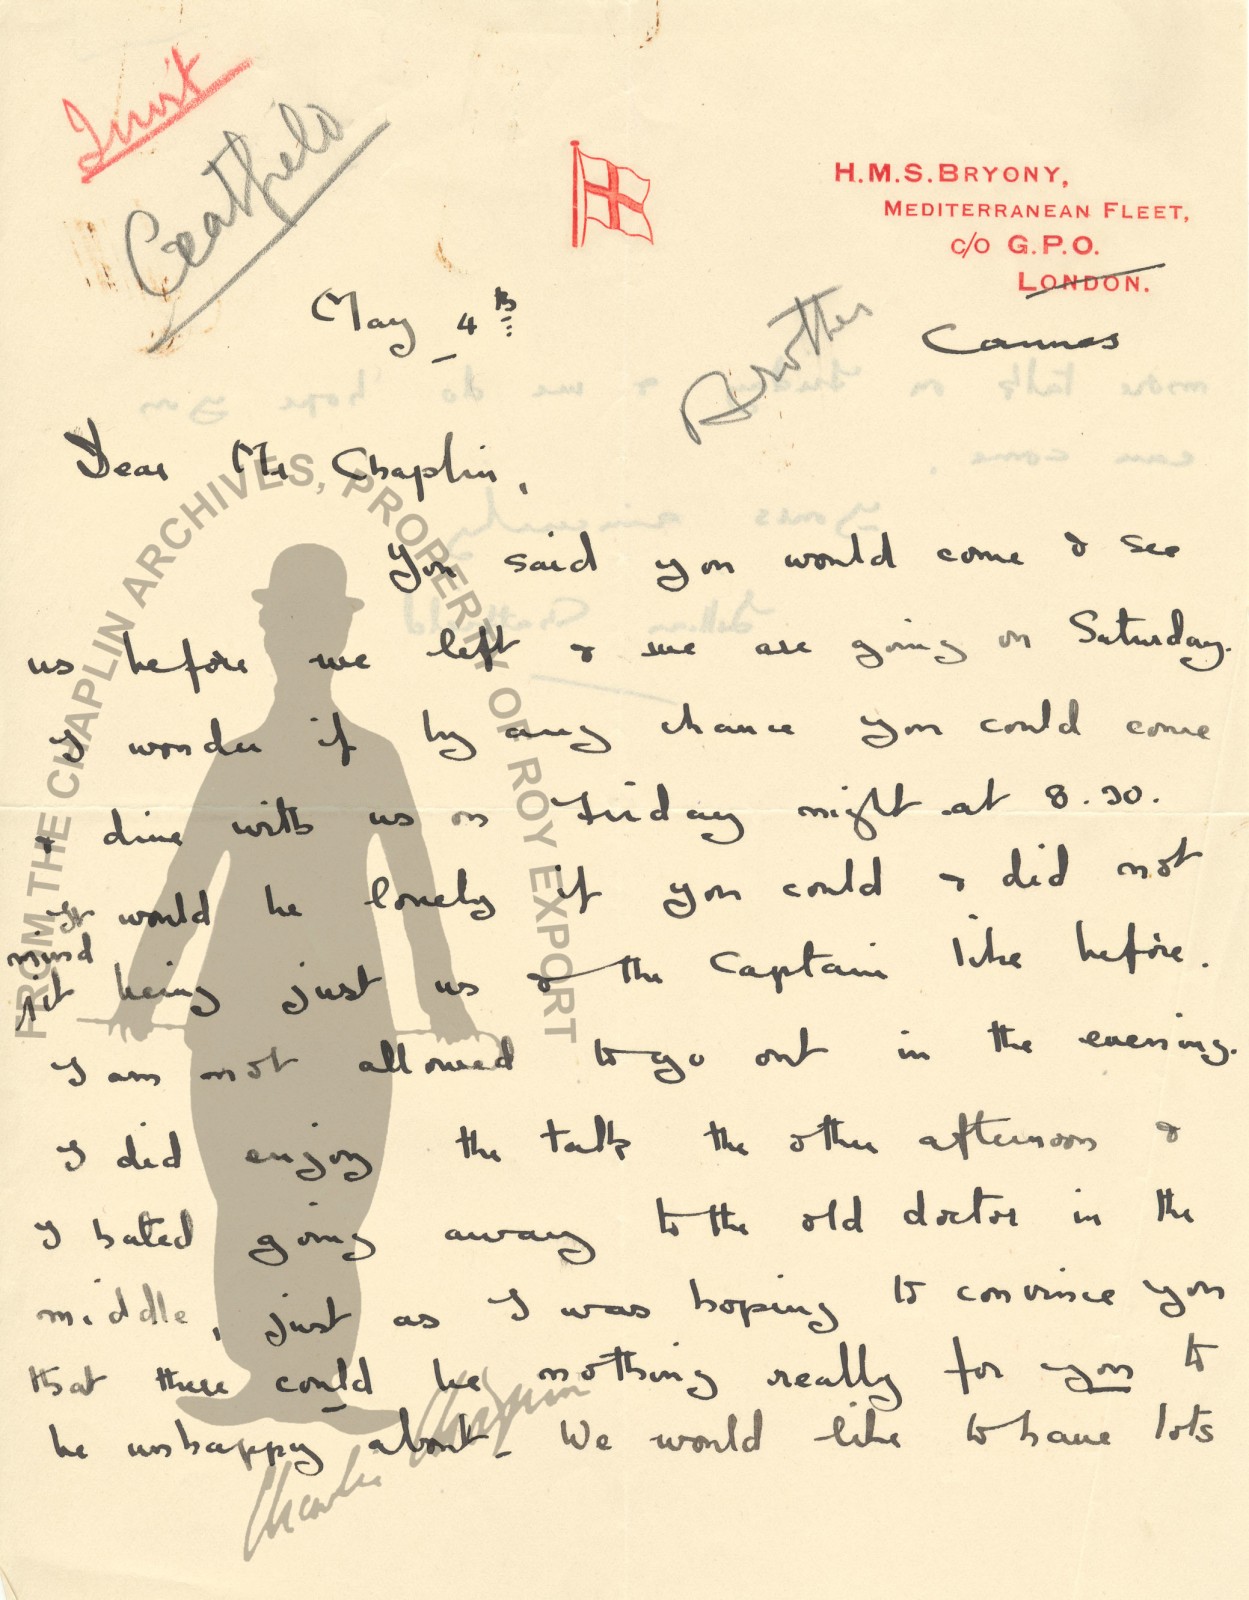 Chatfield
H.M.S. BRYONY,
MEDITERRANEAN FLEET,
C/O G.P.O.
LONDON.
Cannes
May 4th
Another
Dear Mr Chaplin,
You said you would come & see
us before we left & we are going on Saturday.
I wonder if by any chance you could come
& dine with us on Friday night at 8.30.
It would be lovely if you could & did not
mind
it being just us & the Captain like before.
I am not allowed to go out in the evening.
I did enjoy the talk the other afternoon &
I hated going away to the old doctor in the
middle, just as I was hoping to convince you
that there could be nothing really for you to
be unhappy about. We would like to have lots
FROM THE CHAPLIN ARCHIVES, PROPERTY OF ROY EXPORT
Charlie Chaplin
more talk on Friday & we do hope you
can come.
Yours sincerely
Chatfield